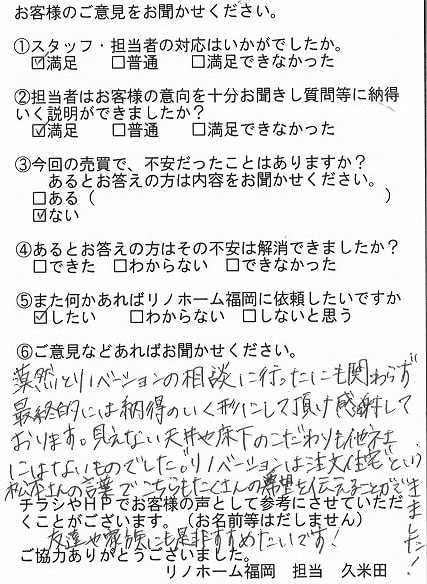 お客様のご意見をお聞かせください。
①スタッフ・担当者の対応はいかがでしたか。
☑満足 □普通 □満足できなかった
②担当者はお客様の意向を十分お聞きし質問等に納得
いく説明ができましたか?
☑満足 □普通 □満足できなかった
③今回の売買で、不安だったことはありますか?
あるとお答えの方は内容をお聞かせください。
□ある( )
☑ない
④あるとお答えの方はその不安は解消できましたか?
□できた □わからない □できなかった
⑤また何かあればリノホーム福岡に依頼したいですか
☑したい □わからない □しないと思う
⑥ご意見などあればお聞かせください。
漠然とリノベーションの相談に行ったにも関わらず
最終的には納得のいく形にして頂け感謝して
おります。見えない天井や床下のこだわりも他社
にはないものでした。"リノベーションは注文住宅"という
松本さんの言葉でこちらもたくさんの希望を伝えることができました!
チラシやHPでお客様の声として参考にさせていただ
くことがございます。(お名前等はだしません)
友達や家族にも是非すすめたいです!
ご協力ありがとうございました。
リノホーム福岡 担当 久米田